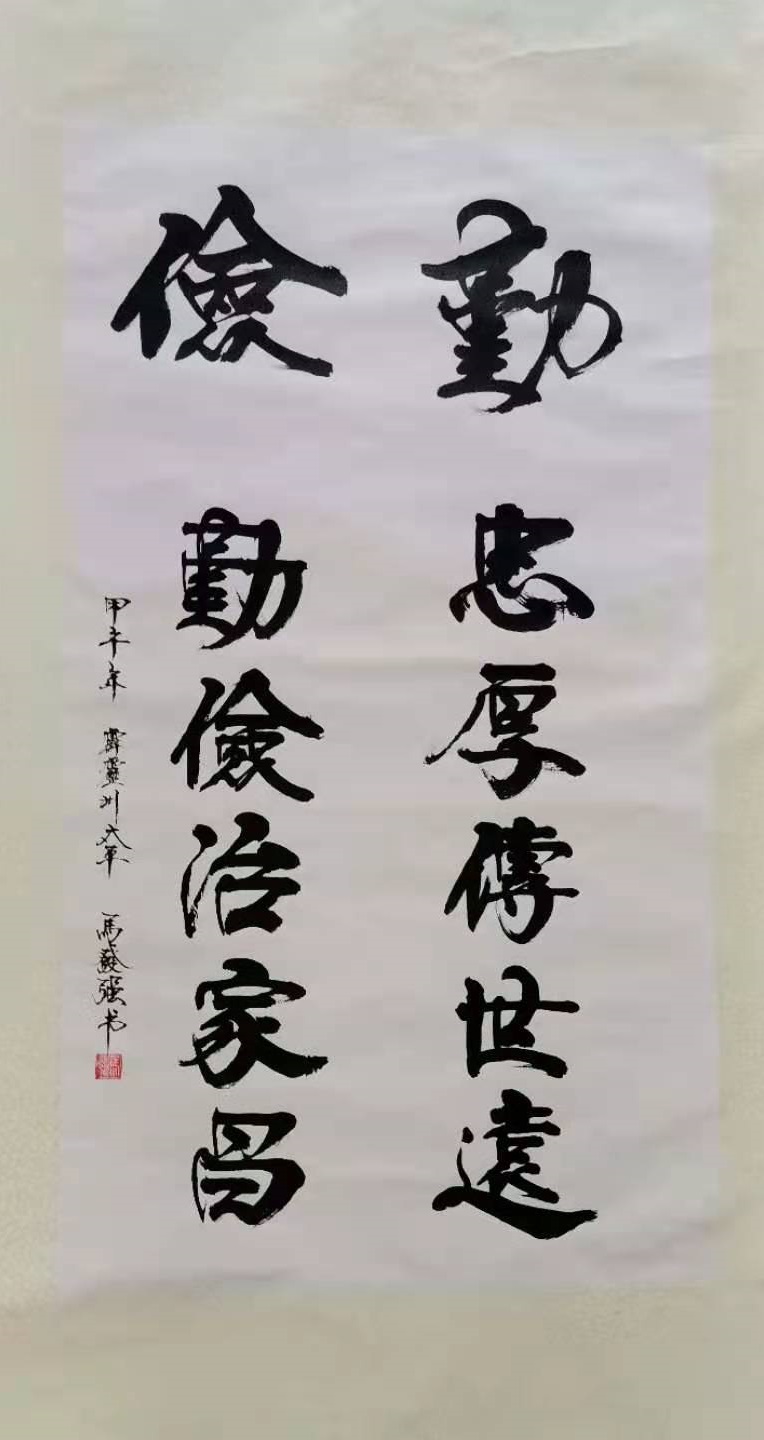 勤儉
忠厚傳世遠
勤儉治家昌
甲午年 霽靈州大軍 馬發强书